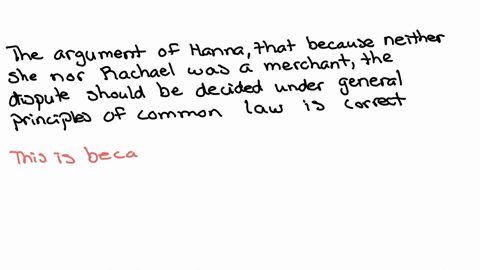 The argument of Hanna, that because neither
she nor Rachael was a merchant, the
dispute should be decided under general
principles of common law is correct
This is beca